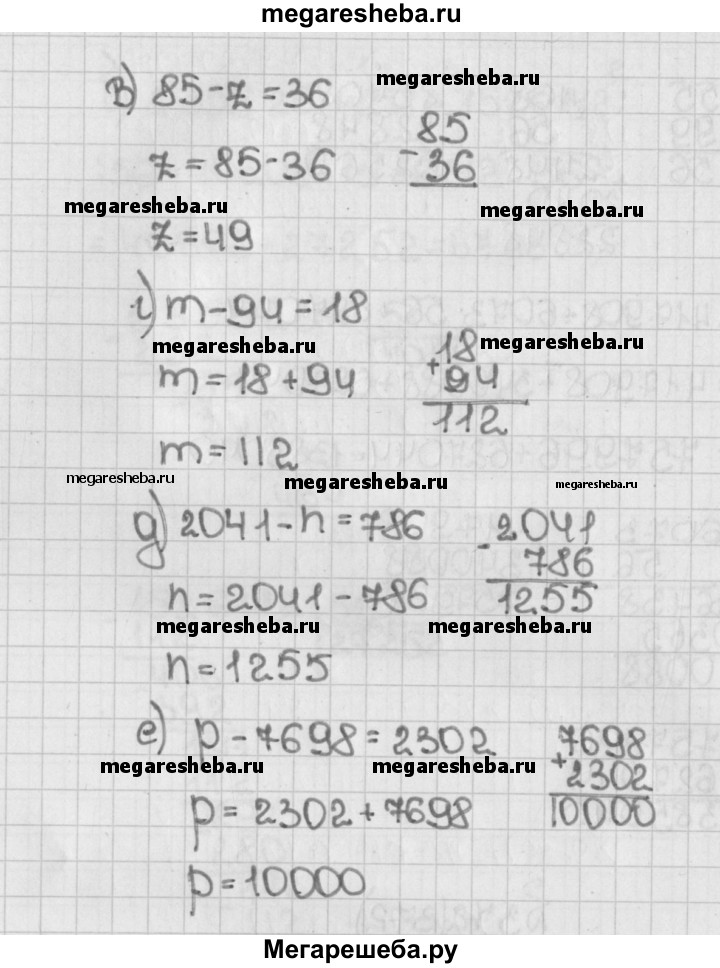 megaresheba.ru
в) 85 - z = 36
megaresheba.ru
85
z = 85 - 36
- 36
megaresheba.ru
megaresheba.ru
z = 49
г) m - 94 = 18
megaresheba.ru
18
megaresheba.ru
m = 18 + 94
+ 94
112
m = 112
megaresheba.ru
megaresheba.ru
megaresheba.ru
д) 2041 - n = 786
2041
- 786
n = 2041 - 786
1255
megaresheba.ru
megaresheba.ru
n = 1255
е) p - 7698 = 2302
7698
megaresheba.ru
megaresheba.ru
+ 2302
p = 2302 + 7698
10000
p = 10000
Мегарешеба.ру